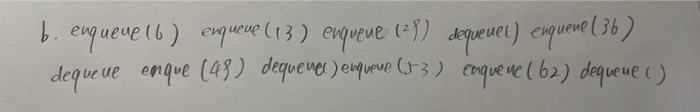 b. enqueue(6) enqueue(13) enqueue(29) dequeue() enqueue(36)
dequeue enque(49) dequeue() enqueue(53) enqueue(62) dequeue()